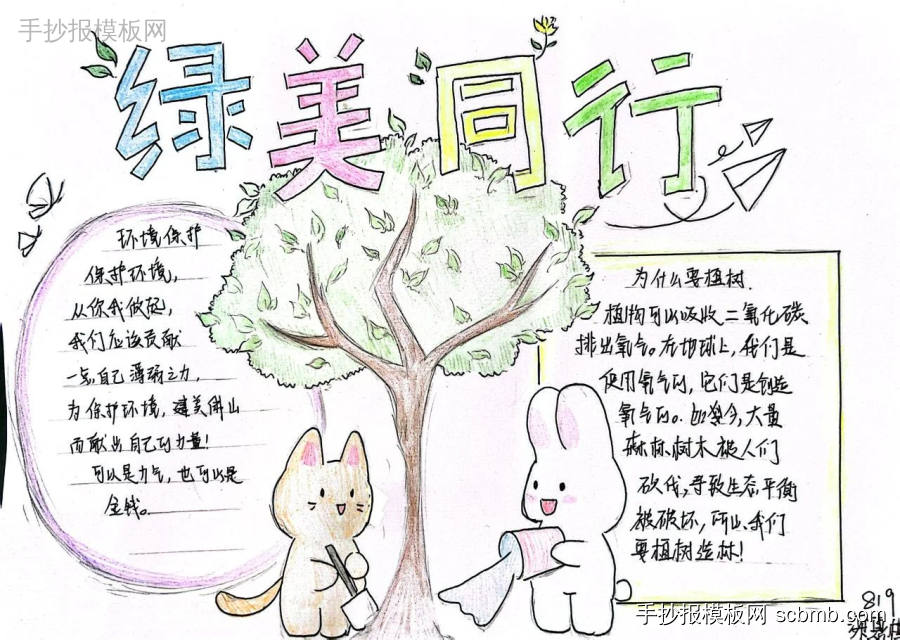 手抄报模板网
绿美同行
环境保护
保护环境，
从你我做起，
我们应该贡献
一点自己薄弱之力，
为保护环境，建美佛山
而献出自己的力量！
可以是力气，也可以是
金钱。
为什么要植树.
植物可以吸收二氧化碳
排出氧气。在地球上，我们是
使用氧气的，它们是创造
氧气的。如今，大量
森林树木被人们
砍伐，导致生态平衡
被破坏，所以我们
要植树造林！
819
手抄报模板网 scbmb.com